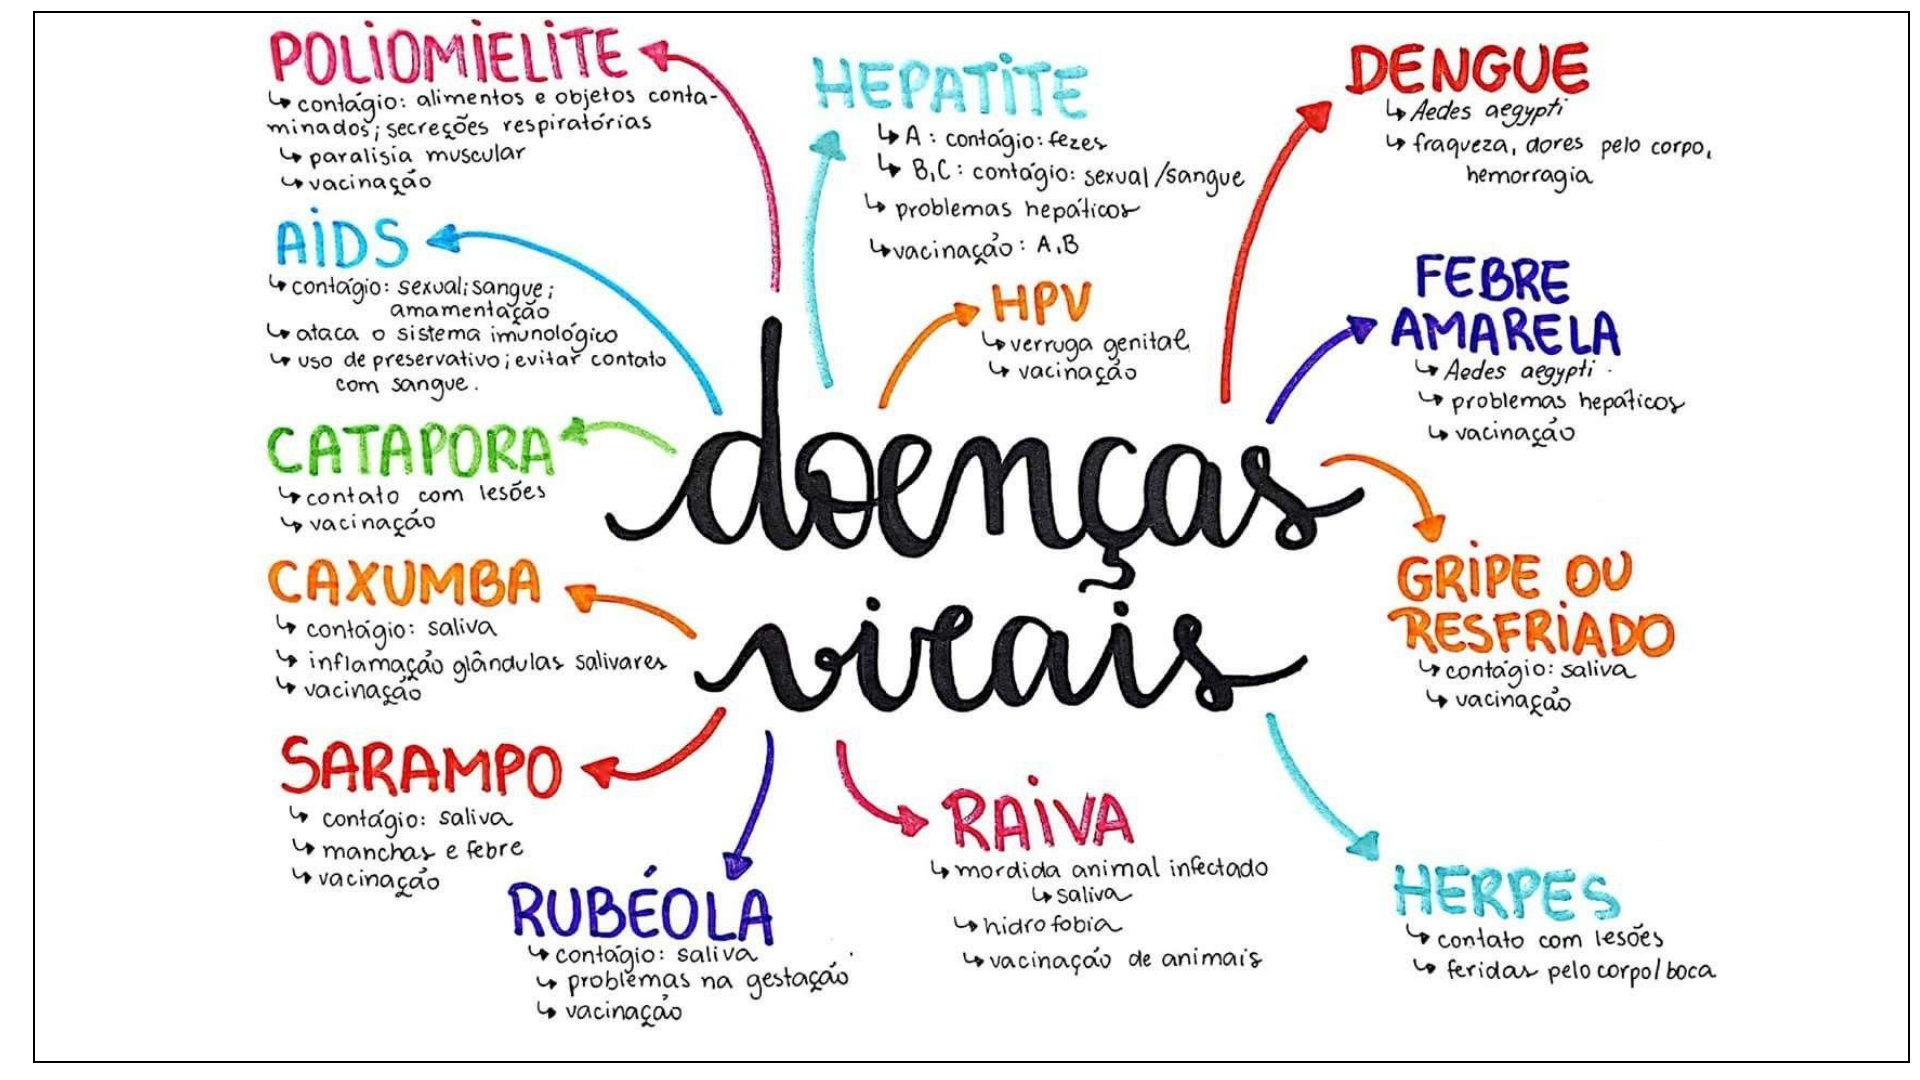 POLIOMIELITE
↳ contágio: alimentos e objetos conta-
minados; secreções respiratórias
↳ paralisia muscular
↳ vacinação
AIDS
↳ contágio: sexual; sangue;
amamentação
↳ ataca o sistema imunológico
↳ uso de preservativo; evitar contato
com sangue.
CATAPORA
↳ contato com lesões
↳ vacinação
CAXUMBA
↳ contágio: saliva
↳ inflamação glândulas salivares
↳ vacinação
SARAMPO
↳ contágio: saliva
↳ manchas e febre
↳ vacinação
RUBÉOLA
↳ contágio: saliva
↳ problemas na gestação
↳ vacinação
HEPATITE
↳ A: contágio: fezes
↳ B,C: contágio: sexual/sangue
↳ problemas hepáticos
↳ vacinação: A,B
HPV
↳ verruga genital
↳ vacinação
doenças
virais
RAIVA
↳ mordida animal infectado
↳ saliva
↳ hidrofobia
↳ vacinação de animais
DENGUE
↳ Aedes aegypti
↳ fraqueza, dores pelo corpo,
hemorragia
FEBRE
AMARELA
↳ Aedes aegypti
↳ problemas hepáticos
↳ vacinação
GRIPE OU
RESFRIADO
↳ contágio: saliva
↳ vacinação
HERPES
↳ contato com lesões
↳ feridas pelo corpo/boca